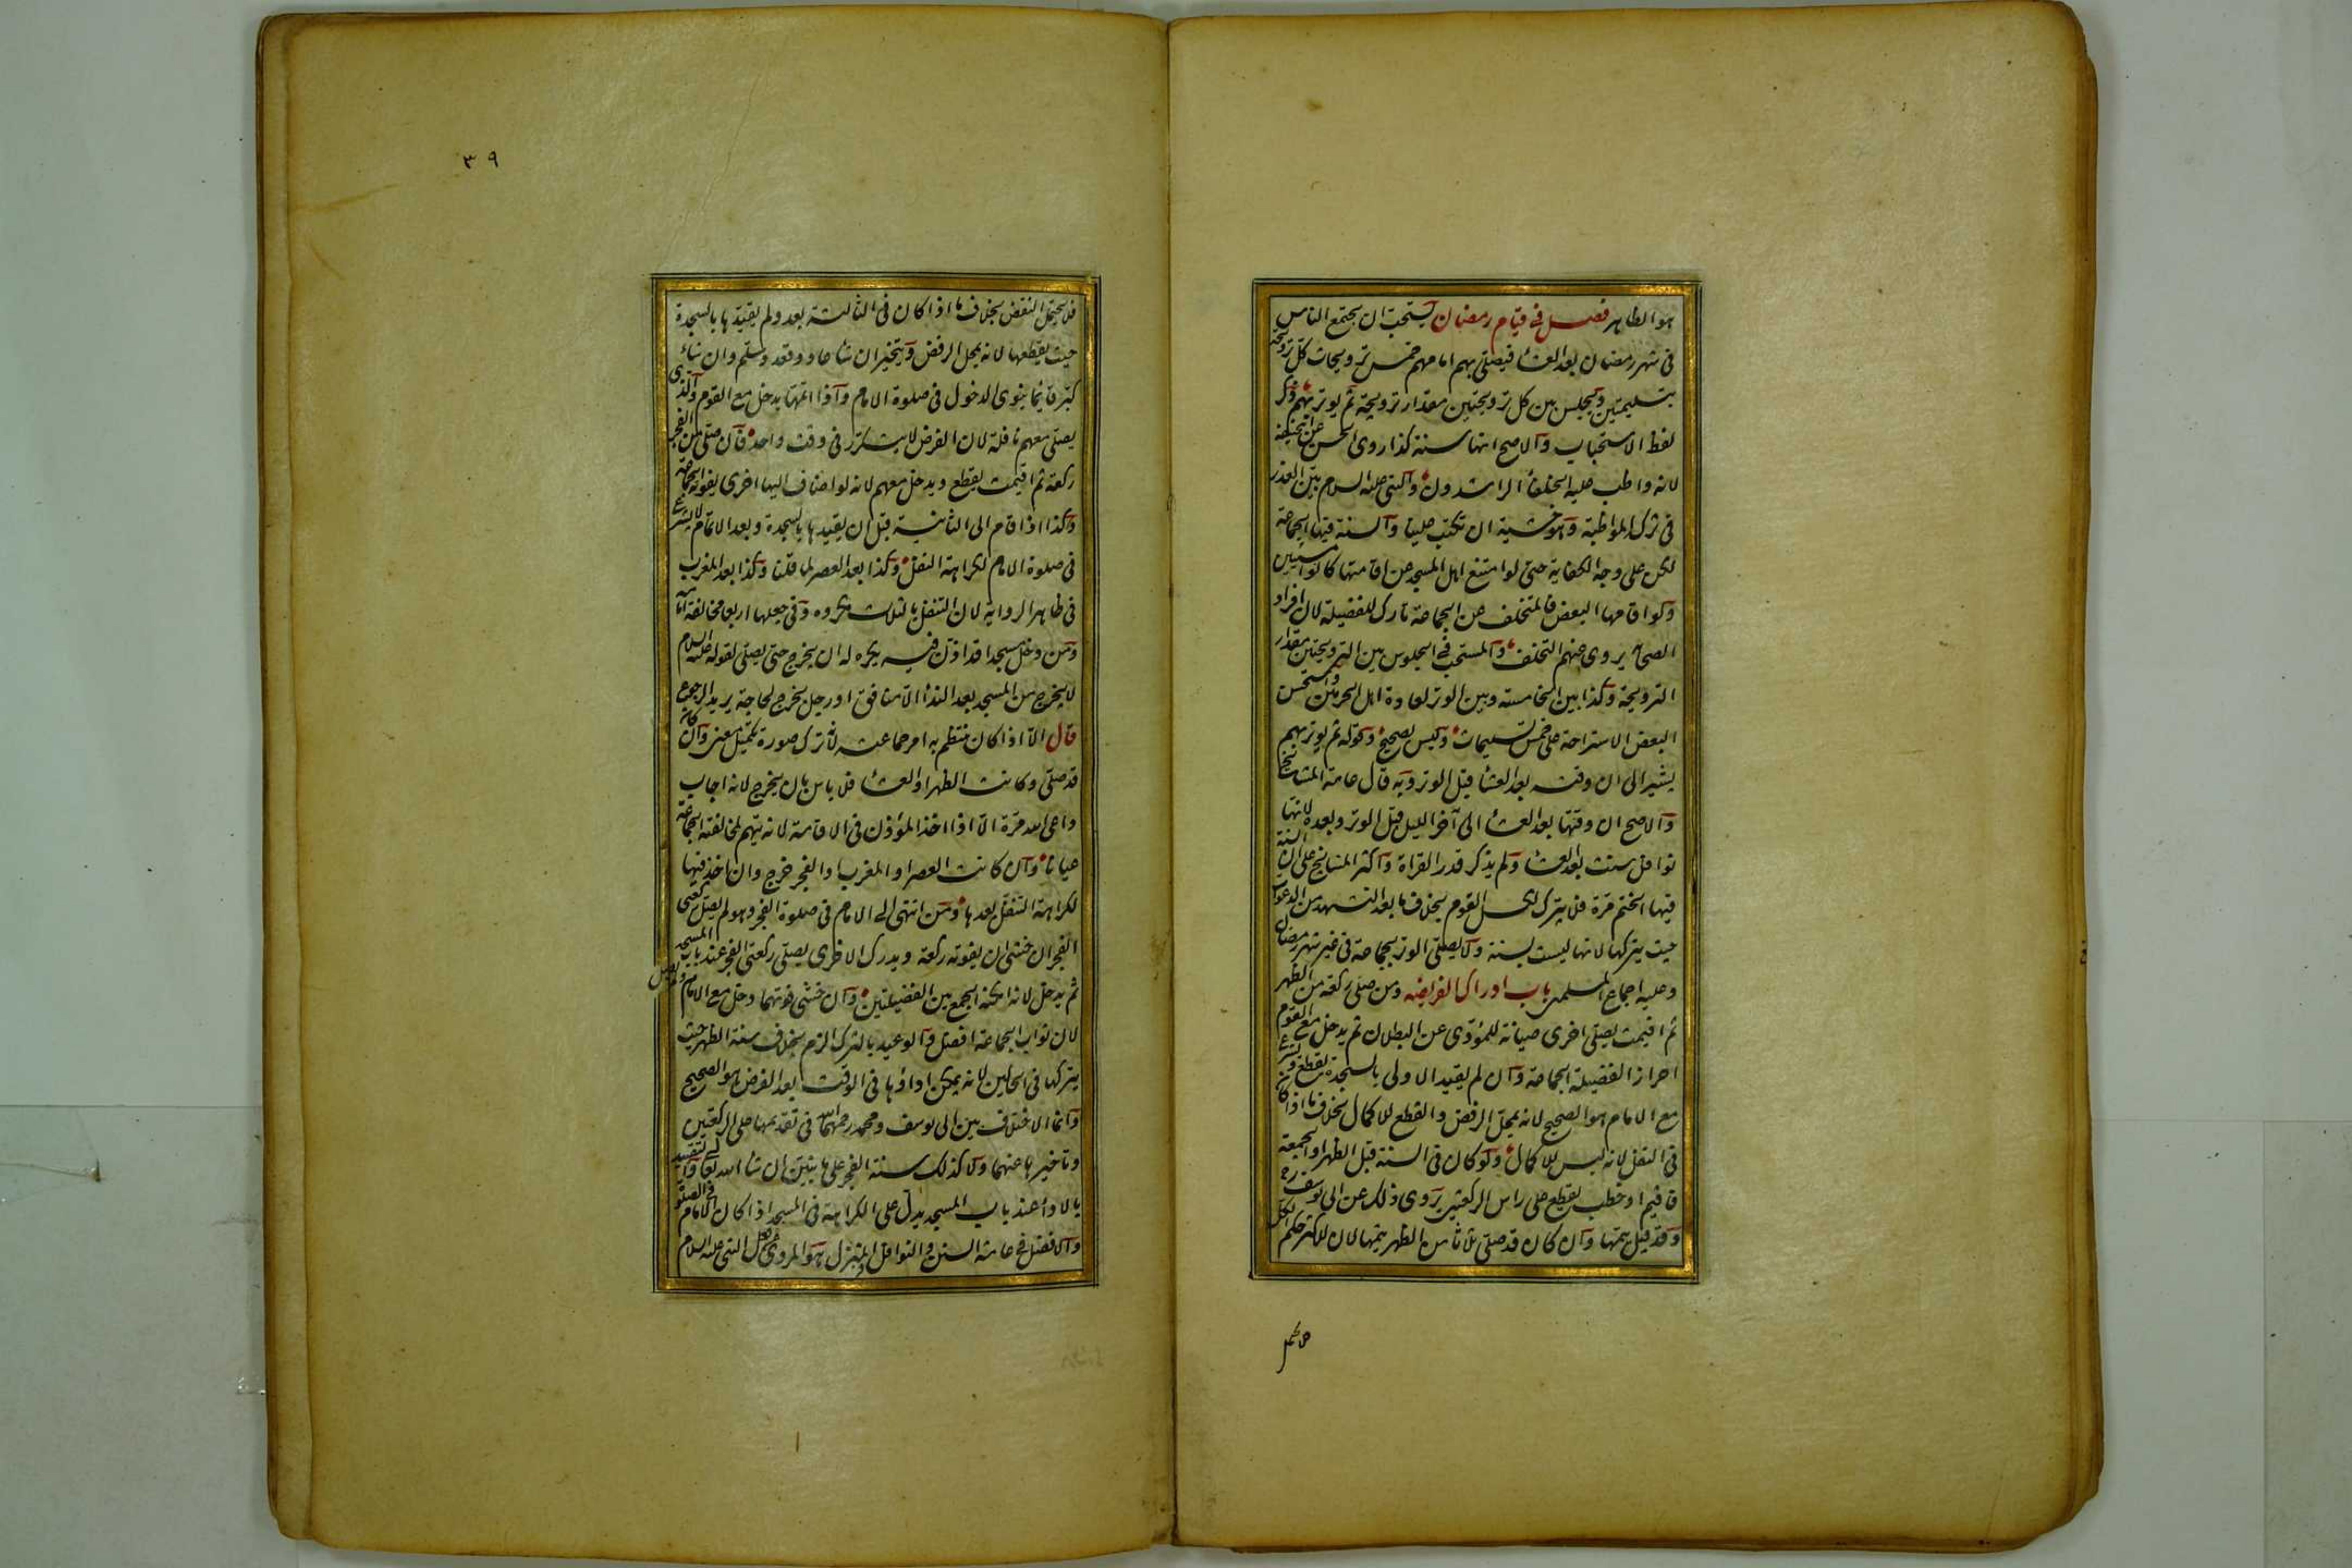 هو الظاهر فصل في قيام رمضان يستحب ان يجتمع الناس
في شهر رمضان بعد العشا فيصلي بهم امامهم خمس ترويحات كل ترويحة
بتسليمتين ويجلس بين كل ترويحتين مقدار ترويحة ثم يوتر بهم ذكر
لفظ الاستحباب والاصح انها سنة كذا روى الحسن عن ابيحنيفة
لانه واظب عليه الخلفا الراشدون والنبي عليه السلام بين العذر
في ترك المواظبة وهو خشية ان تكتب علينا والسنة فيها الجماعة
لكن على وجه الكفاية حتى لو امتنع اهل المسجد عن اقامتها كانوا مسيئين
ولو اقامها البعض فالمتخلف عن الجماعة تارك للفضيلة لان افراد
الصحابة يروى عنهم التخلف والمستحب في الجلوس بين الترويحتين مقدار
الترويحة وكذا بين الخامسة وبين الوتر لعادة اهل الحرمين واستحسن
البعض الاستراحة على خمس تسليمات وليس بصحيح وقوله ثم يوتر بهم
يشير الى ان وقته بعد العشا قبل الوتر وبه قال عامة المشايخ
والاصح ان وقتها بعد العشا الى آخر الليل قبل الوتر وبعده لانها
نوافل سنت بعد العشا ولم يذكر قدر القراة واكثر المشايخ على ان السنة
فيها الختم مرة فلا يترك لكسل القوم بخلاف ما بعد التشهد من الدعوات
حيث يتركها لانها ليست بسنة ولا يصلي الوتر بجماعة في غير شهر رمضان
وعليه اجماع المسلمين باب ادراك الفريضة ومن صلى ركعة من الظهر
ثم اقيمت يصلي اخرى صيانة للمؤدى عن البطلان ثم يدخل مع القوم
احرازا لفضيلة الجماعة وان لم يقيد الاولى بالسجدة يقطع ويشرع
مع الامام هو الصحيح لانه بمحل الرفض والقطع للاكمال بخلاف ما اذا كان
في النفل لانه ليس للاكمال ولو كان في السنة قبل الظهر او الجمعة
فاقيم او خطب يقطع على راس الركعتين يروى ذلك عن ابي يوسف رح
وقد قيل يتمها وان كان قد صلى ثلاثا من الظهر يتمها لان للاكثر حكم الكل
فلا يحتمل
٣٩
فلا يحتمل النقض بخلاف ما اذا كان في الثالثة بعد ولم يقيدها بالسجدة
حيث يقطعها لانه بمحل الرفض ويتخير ان شا عاد وقعد وسلم وان شاء
كبر قائما ينوي الدخول في صلوة الامام واذا اتمها يدخل مع القوم والذي
يصلي معهم نافلة لان الفرض لا يتكرر في وقت واحد فان صلى من الفجر
ركعة ثم اقيمت يقطع ويدخل معهم لانه لو اضاف اليها اخرى يفوته الجماعة
وكذا اذا قام الى الثانية قبل ان يقيدها بالسجدة وبعد الاتمام لا يشرع
في صلوة الامام لكراهة النفل وكذا بعد العصر لما قلنا وكذا بعد المغرب
في ظاهر الرواية لان التنفل بالثلاث مكروه وفي جعلها اربعا مخالفة امامه
ومن دخل مسجدا قد اذن فيه يكره له ان يخرج حتى يصلي لقوله عليه السلام
لا يخرج من المسجد بعد الندا الا منافق او رجل يخرج لحاجة يريد الرجوع
قال الا اذا كان ينتظم به امر جماعة لانه ترك صورة تكميل معنى وان كان
قد صلى وكانت الظهر او العشا فلا باس بان يخرج لانه اجاب
داعي الله مرة الا اذا اخذ المؤذن في الاقامة لانه يتهم لمخالفة الجماعة
عيانا وان كانت العصر او المغرب او الفجر خرج وان اخذ فيها
لكراهة التنفل بعدها ومن انتهى الى الامام في صلوة الفجر وهو لم يصل ركعتي
الفجر ان خشي ان يفوته ركعة ويدرك الاخرى يصلي ركعتي الفجر عند باب المسجد
ثم يدخل لانه امكنه الجمع بين الفضيلتين وان خشي فوتهما دخل مع الامام ولم يصل
لان ثواب الجماعة افضل والوعيد بالترك الزم بخلاف سنة الظهر حيث
يتركها في الحالين لانه يمكن اداؤها في الوقت بعد الفرض هو الصحيح
وانما الاختلاف بين ابي يوسف ومحمد رحمهما الله في تقديمها على الركعتين
وتاخيرها عنهما ولا كذلك سنة الفجر على ما نبين ان شا الله تعا والتقييد
بالاداء عند باب المسجد يدل على الكراهة في المسجد اذا كان الامام في الصلوة
والافضل في عامة السنن والنوافل المنزل هو المروي عن النبي عليه السلام